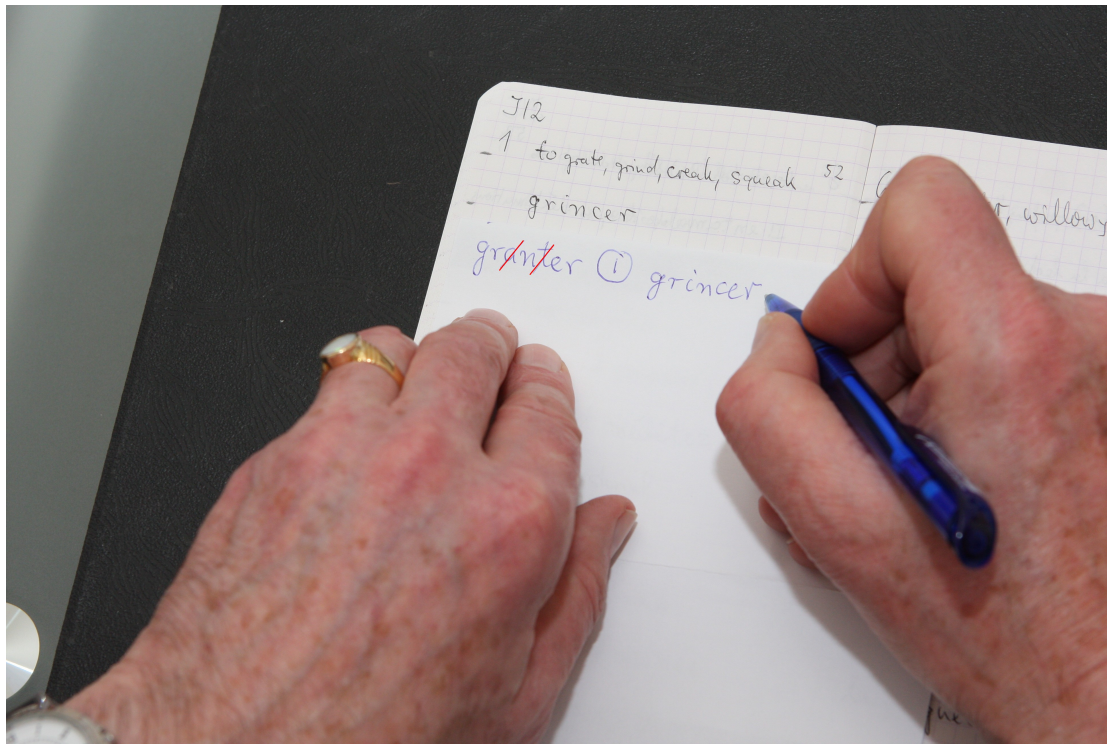 J12
1 to grate, grind, creak, squeak 52
grincer
granter i grincer
willowy